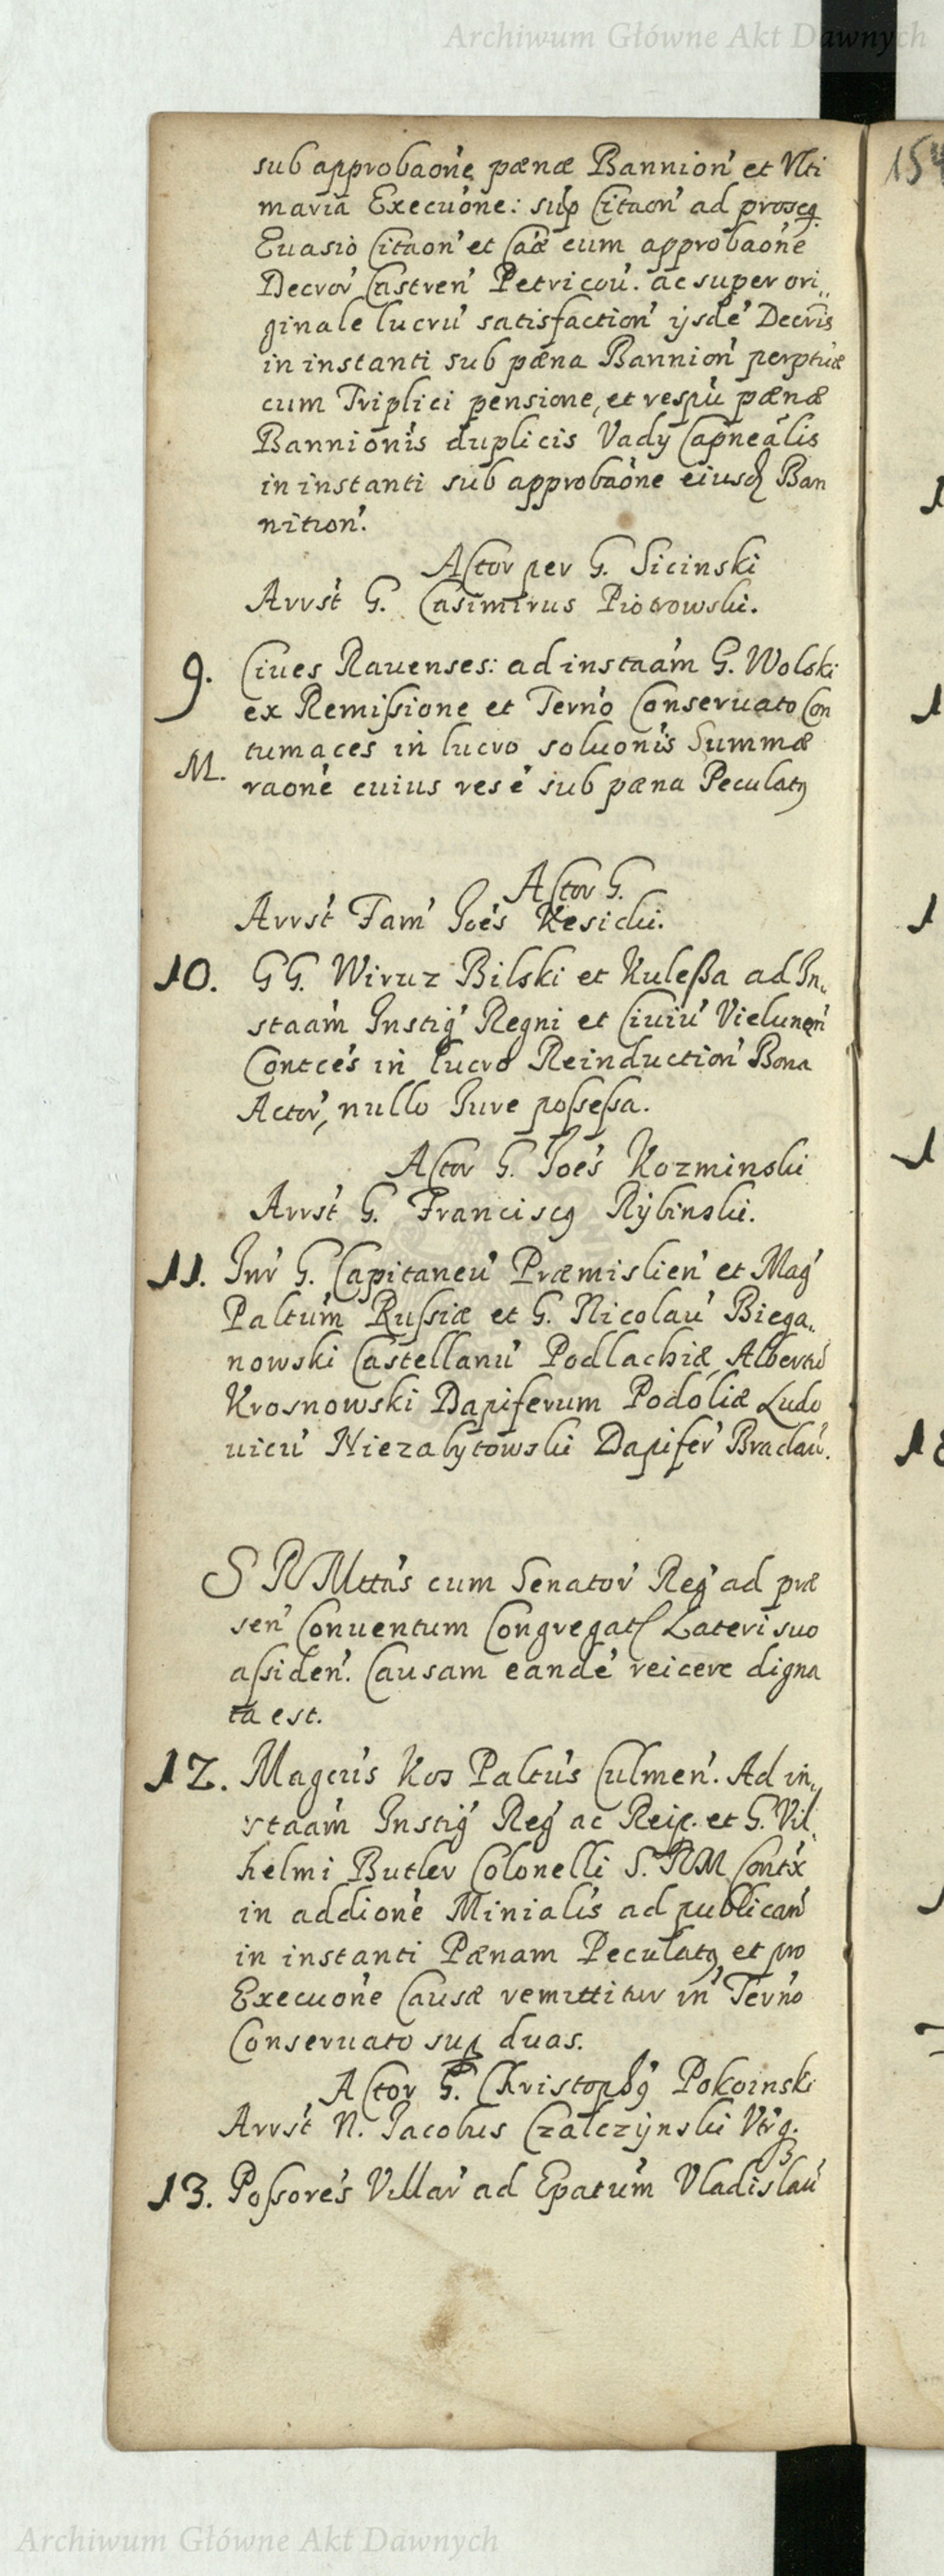 Archiwum Główne Akt Dawnych
154
sub approbaõne pænæ Bannion' et Vlti
maria Execuõne: sup Citaon' ad proseq.
Euasio Citaon' et Cãe cum approbaõne
Decror' Castren' Petricou. ac super ori„
ginale lucru' satisfaction' ijsde' Decris
in instanti sub pæna Bannion' perptuæ
cum Triplici pensione, et respu' pænæ
Bannionis duplicis Vady Capnealis
in instanti sub approbaõne eiusd Ban
nition'.
Actor per G. Sicinski
Arrst G. Casimirus Piotrowski.
9. Ciues Rauenses: ad instaam G. Wolski
ex Remissione et Terno Conseruato Con
tumaces in lucro soluonis Summæ
M. raone cuius res e' sub pæna Peculatq
Actor G.
Arrst Fam' Joes Kesicki.
10. GG. Wiruz Bilski et Kulessa ad In„
staam Instig' Regni et Ciuiu' Vielunen'
Contces in lucro Reinduction' Bona
Actor', nullo Jure possessa.
Actor G. Joes Kozminski
Arrst G. Franciscq Rÿbinski.
11. Inr G. Capitaneu' Præmislien' et Mag'
Paltum Russiæ et G. Nicolau' Biega„
nowski Castellanu' Podlachiæ Albertu'
Krosnowski Dapiferum Podoliæ Ludo
uicu' Niezabytowski Dapifer' Braclau'.
S R Mttas cum Senator' Reg' ad præ
sen' Conuentum Congregat Lateri suo
assiden'. Causam eande' reicere digna
ta est.
12. Magcus Kos Paltus Culmen'. Ad in„
staam Instig' Reg' ac Reip. et G. Vil
helmi Butler Colonelli S. RM Contx
in addione Minialis ad publican'
in instanti Pænam Peculatq et pro
Execuone Causæ remittitur in Terno
Conseruato sup duas.
Actor G. Christophq Pokoinski
Arrst N. Jacobus Czalczÿnski Vtrq.
13. Possores Villar' ad Epatum Vladislau'
Archiwum Główne Akt Dawnych